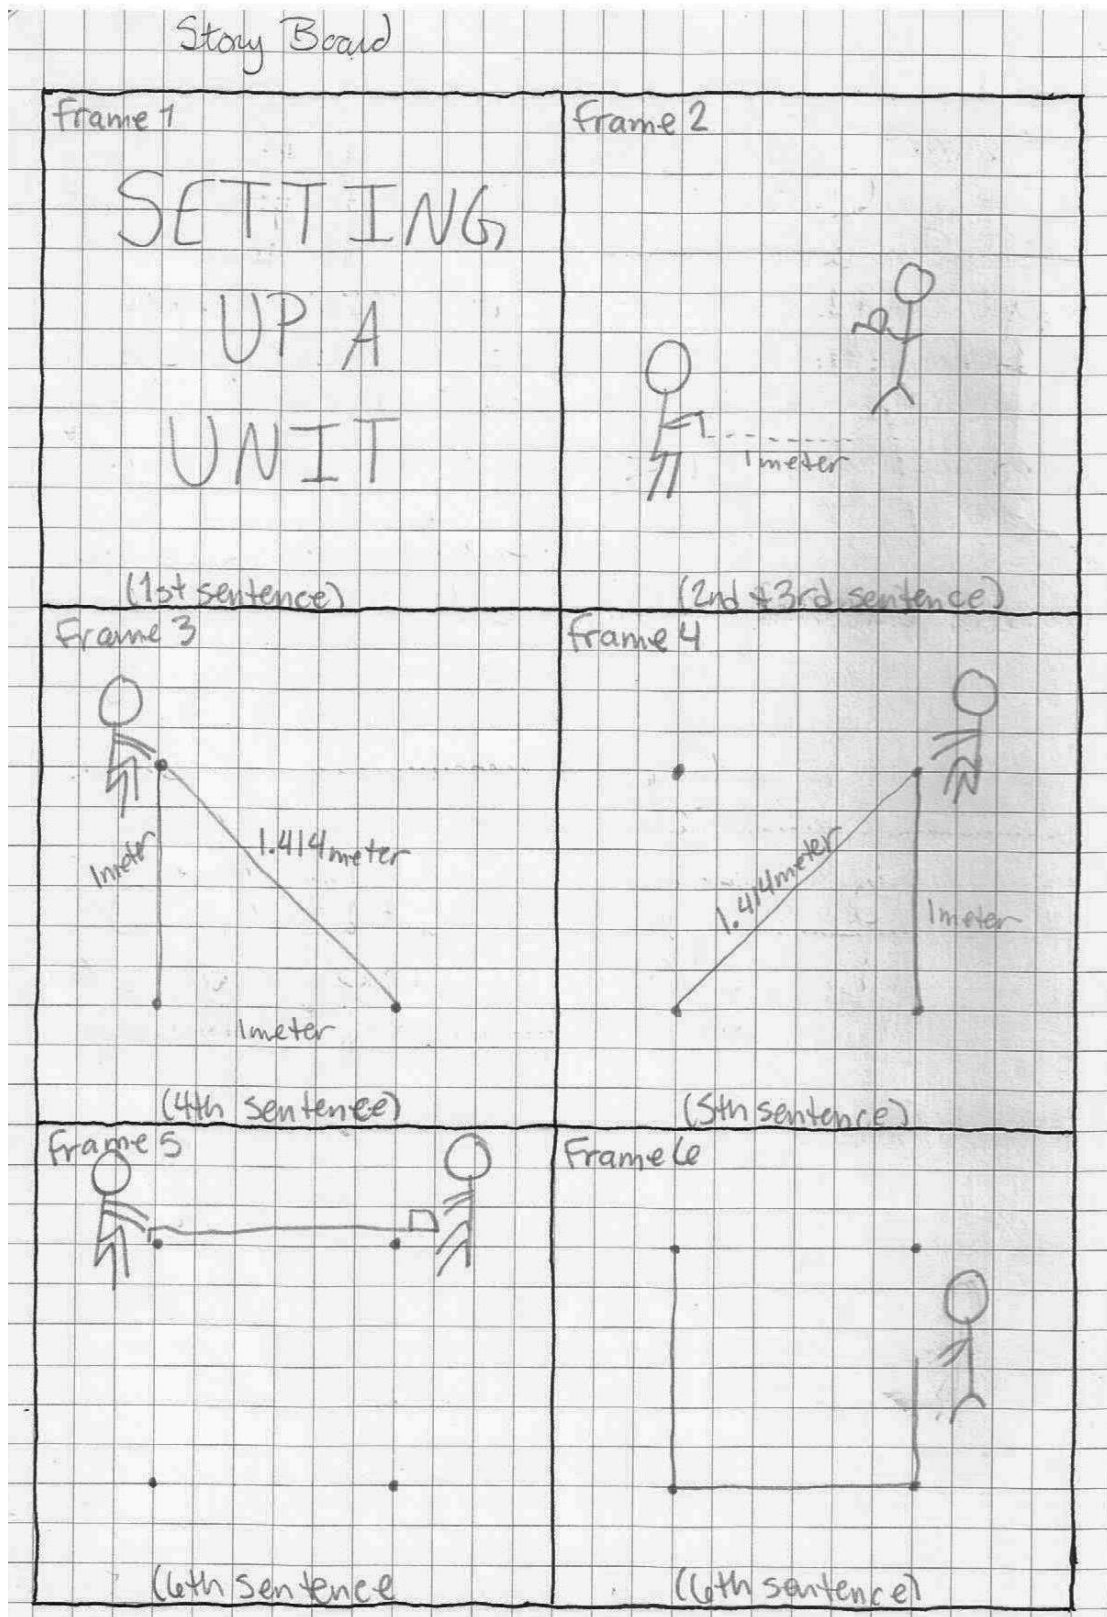 Story Board
Frame 1
SETTING
UP A
UNIT
(1st sentence)
Frame 2
1 meter
(2nd & 3rd sentence)
Frame 3
1meter
1.414meter
1meter
(4th sentence)
Frame 4
1.414meter
1meter
(5th sentence)
Frame 5
(6th sentence
Frame 6
(6th sentence)